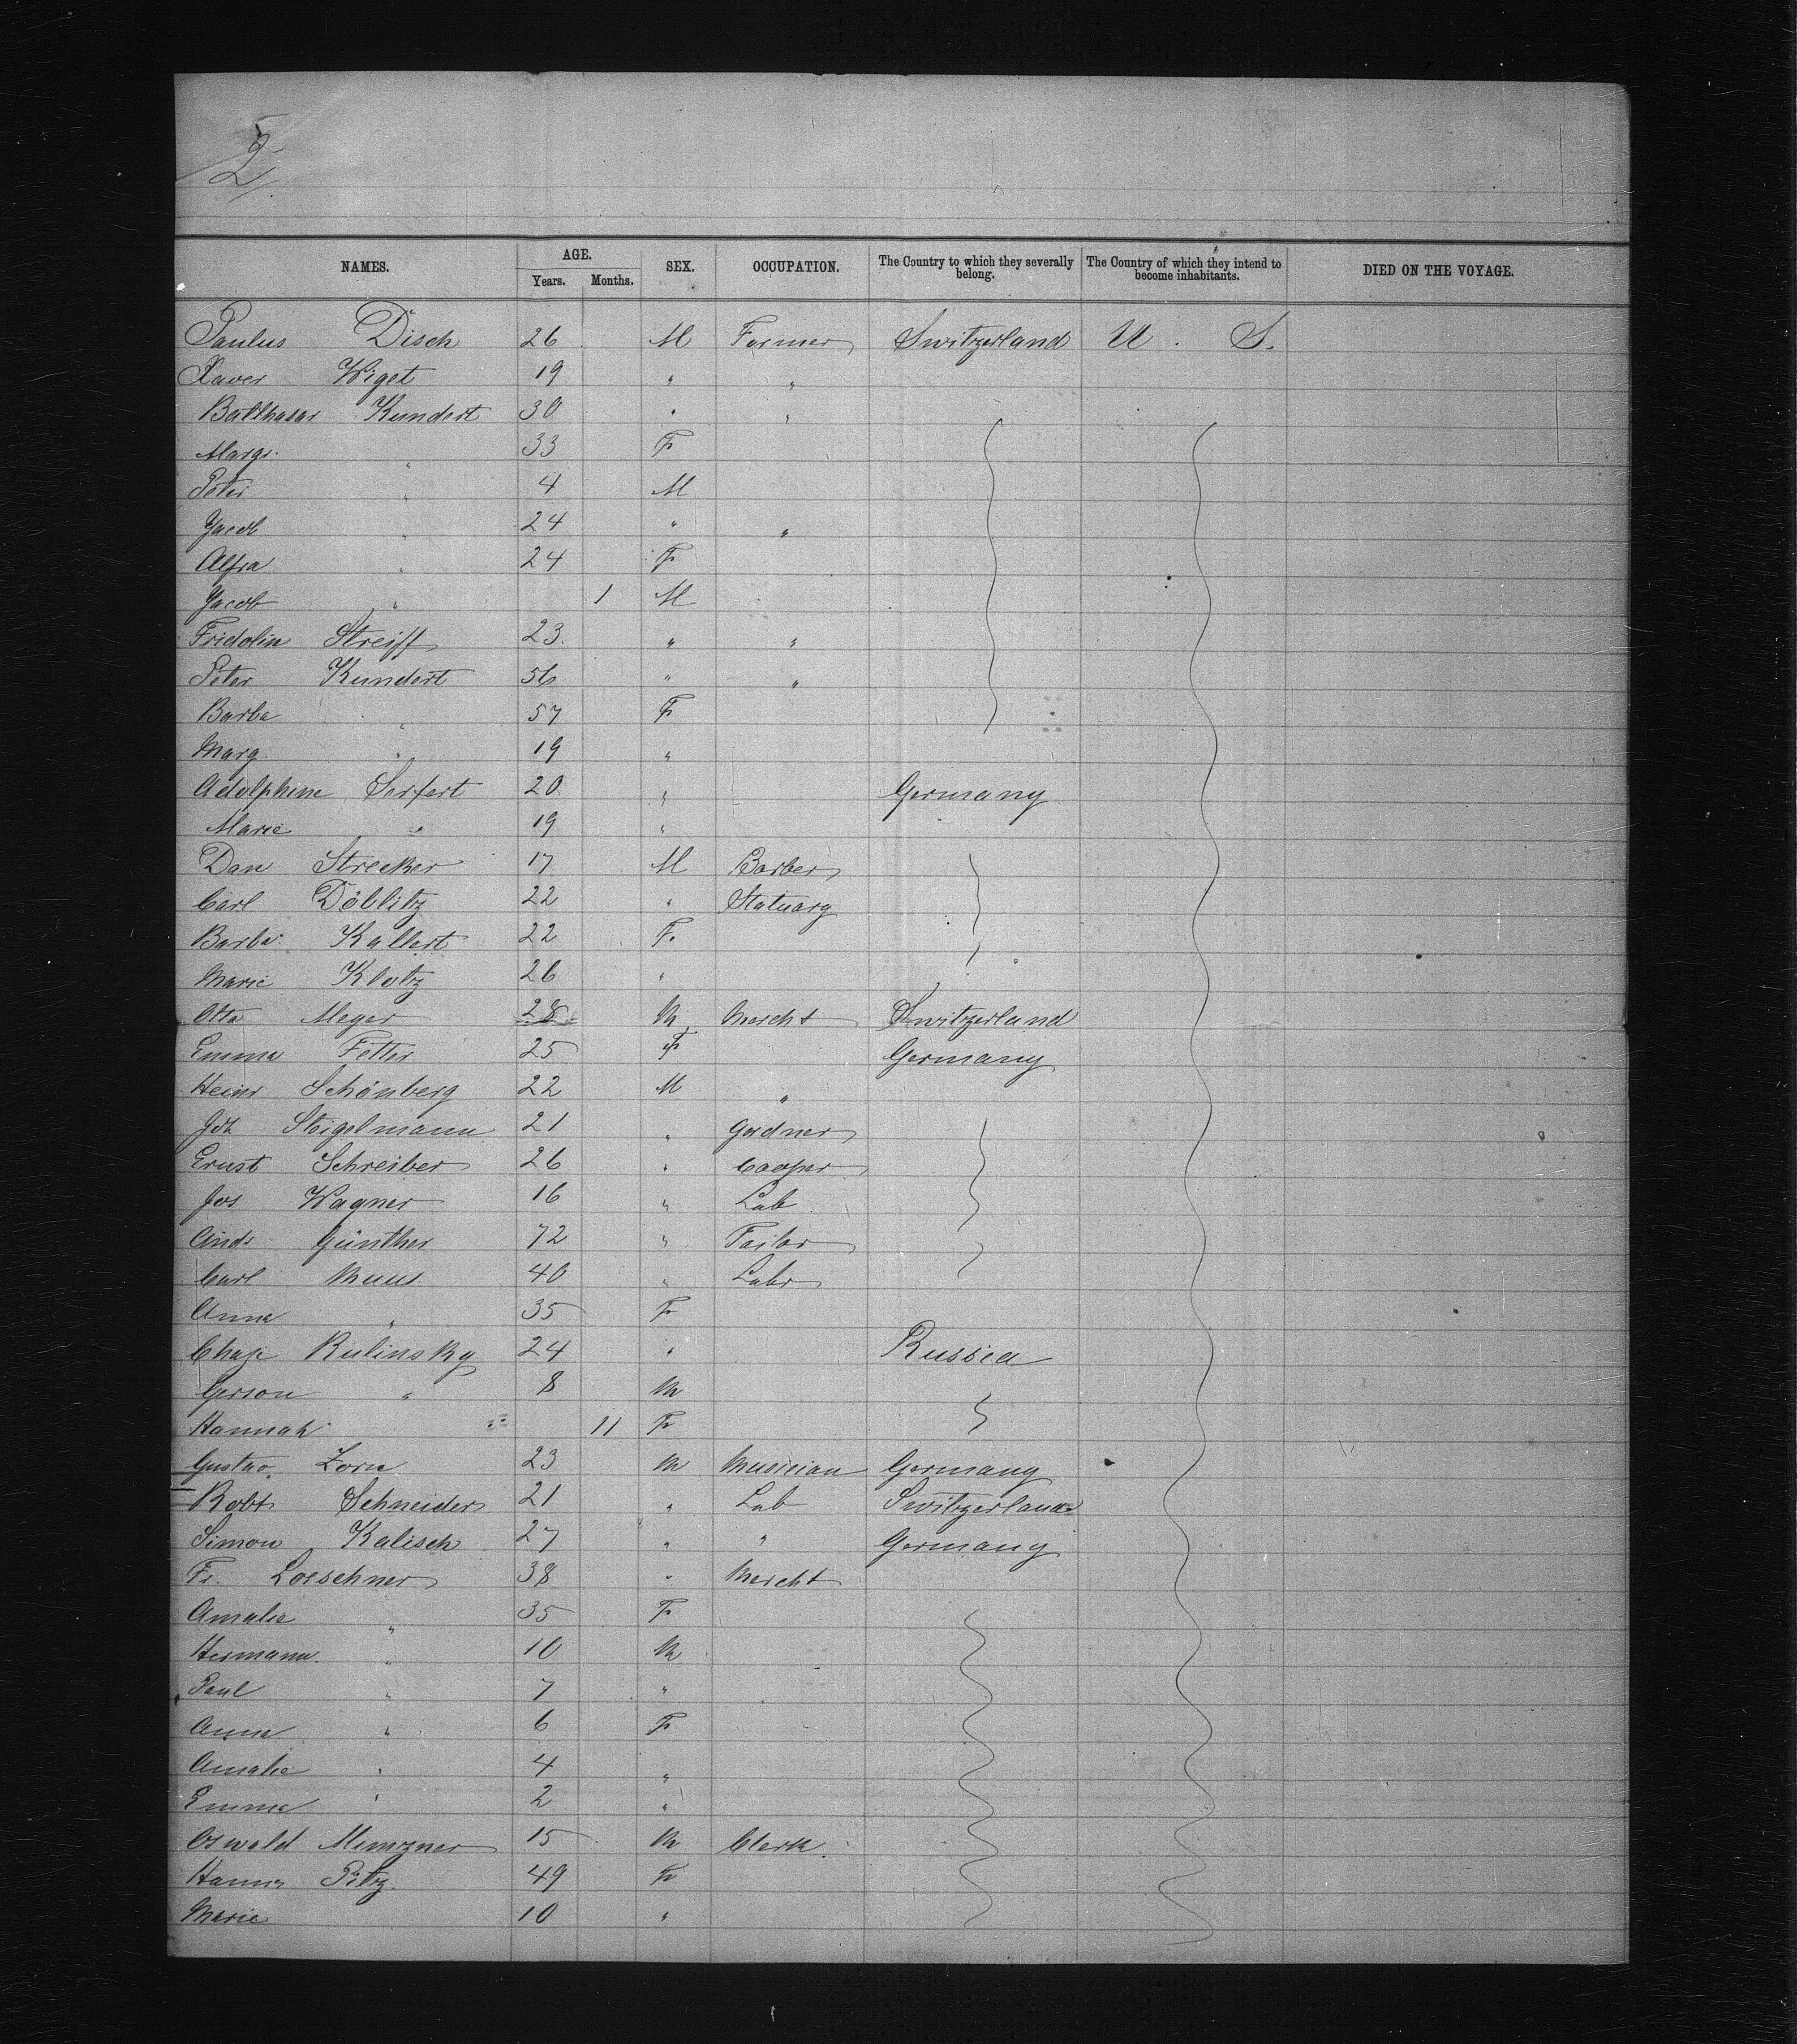 2/.
NAMES. AGE. SEX. OCCUPATION. The Country to which they severally belong. The Country of which they intend to become inhabitants. DIED ON THE VOYAGE.
Years. Months.
Paulus Disch 26 M Farmer Switzerland U. S.
Xaver Wiget 19 " "
Balthasar Kundert 30 " "
Margr. " 33 F
Peter " 4 M
Jacob " 24 " "
Afra " 24 F
Jacob " 1 M
Fridolin Streiff 23 " "
Peter Kundert 56 " "
Barba " 57 F
Marg. " 19 "
Adolphine Serfert 20 " Germany
Marie " 19 "
Dan Strecker 17 M Barber
Carl Döblitz 22 " Statuary
Barba: Kallert 22 F.
Marie Klotz 26 "
Otto Meyer 28 M Mercht Switzerland
Emma Fetter 25 F Germany
Heinr Schönberg 22 M "
Joh Steigelmann 21 " Gardner
Ernst Schreiber 26 " Cooper
Jos Wagner 16 " Lab
Andr Günther 72 " Tailor
Carl Muus 40 " Labr
Anna " 35 F
Chaje Rulinsky 24 " Russia
Gerson " 8 M
Hannah " 11 F
Gustav Zorn 23 M Musician Germany
Robt Schneider 21 " Lab Switzerland
Simon Kalisch 27 " " Germany
Fr. Loeschner 38 " Mercht
Amalie " 35 F
Hermann " 10 M
Paul " 7 "
Anna " 6 F
Amalie " 4 "
Emma " 2 "
Oswald 15 M Clerk
Hanna Pitz 49 F
Marie 10 "